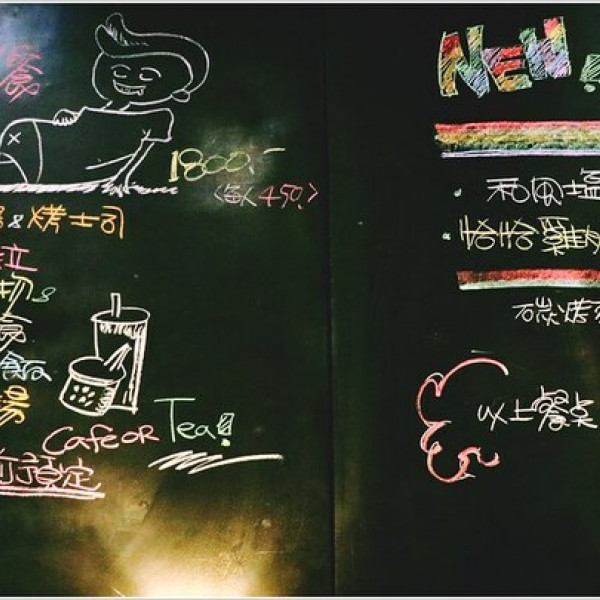 餐
1800.-
<每人450.>
&烤土司
立
物&
飯
湯
Cafe OR Tea!
前預定
NEW!
和風塩
恰恰雞肉
碳烤
以上餐桌